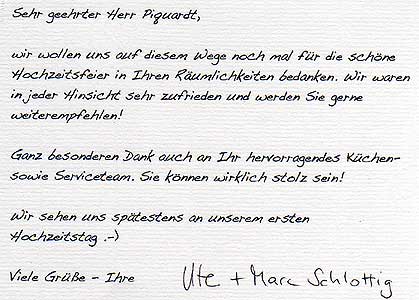 Sehr geehrter Herr Piquardt,
wir wollen uns auf diesem Wege noch mal für die schöne
Hochzeitsfeier in Ihren Räumlichkeiten bedanken. Wir waren
in jeder Hinsicht sehr zufrieden und werden Sie gerne
weiterempfehlen!
Ganz besonderen Dank auch an Ihr hervorragendes Küchen-
sowie Serviceteam. Sie können wirklich stolz sein!
Wir sehen uns spätestens an unserem ersten
Hochzeitstag :-)
Viele Grüße - Ihre Ute + Marc Schlottig